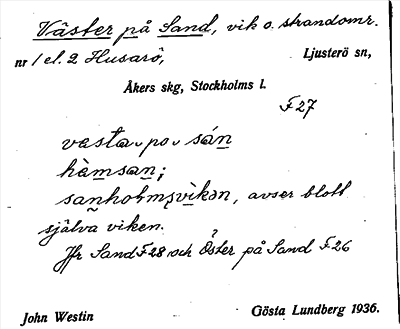 Väster på Sand, vik o. strandomr.
nr 1 el. 2 Husarö, Ljusterö sn,
Åkers skg, Stockholms l.
F27
vesta⌣po⌣sán
hàmsan;
sanholmsvikən, avser blott
själva viken.
Jfr Sand F28 och Öster på Sand F26
John Westin Gösta Lundberg 1936.